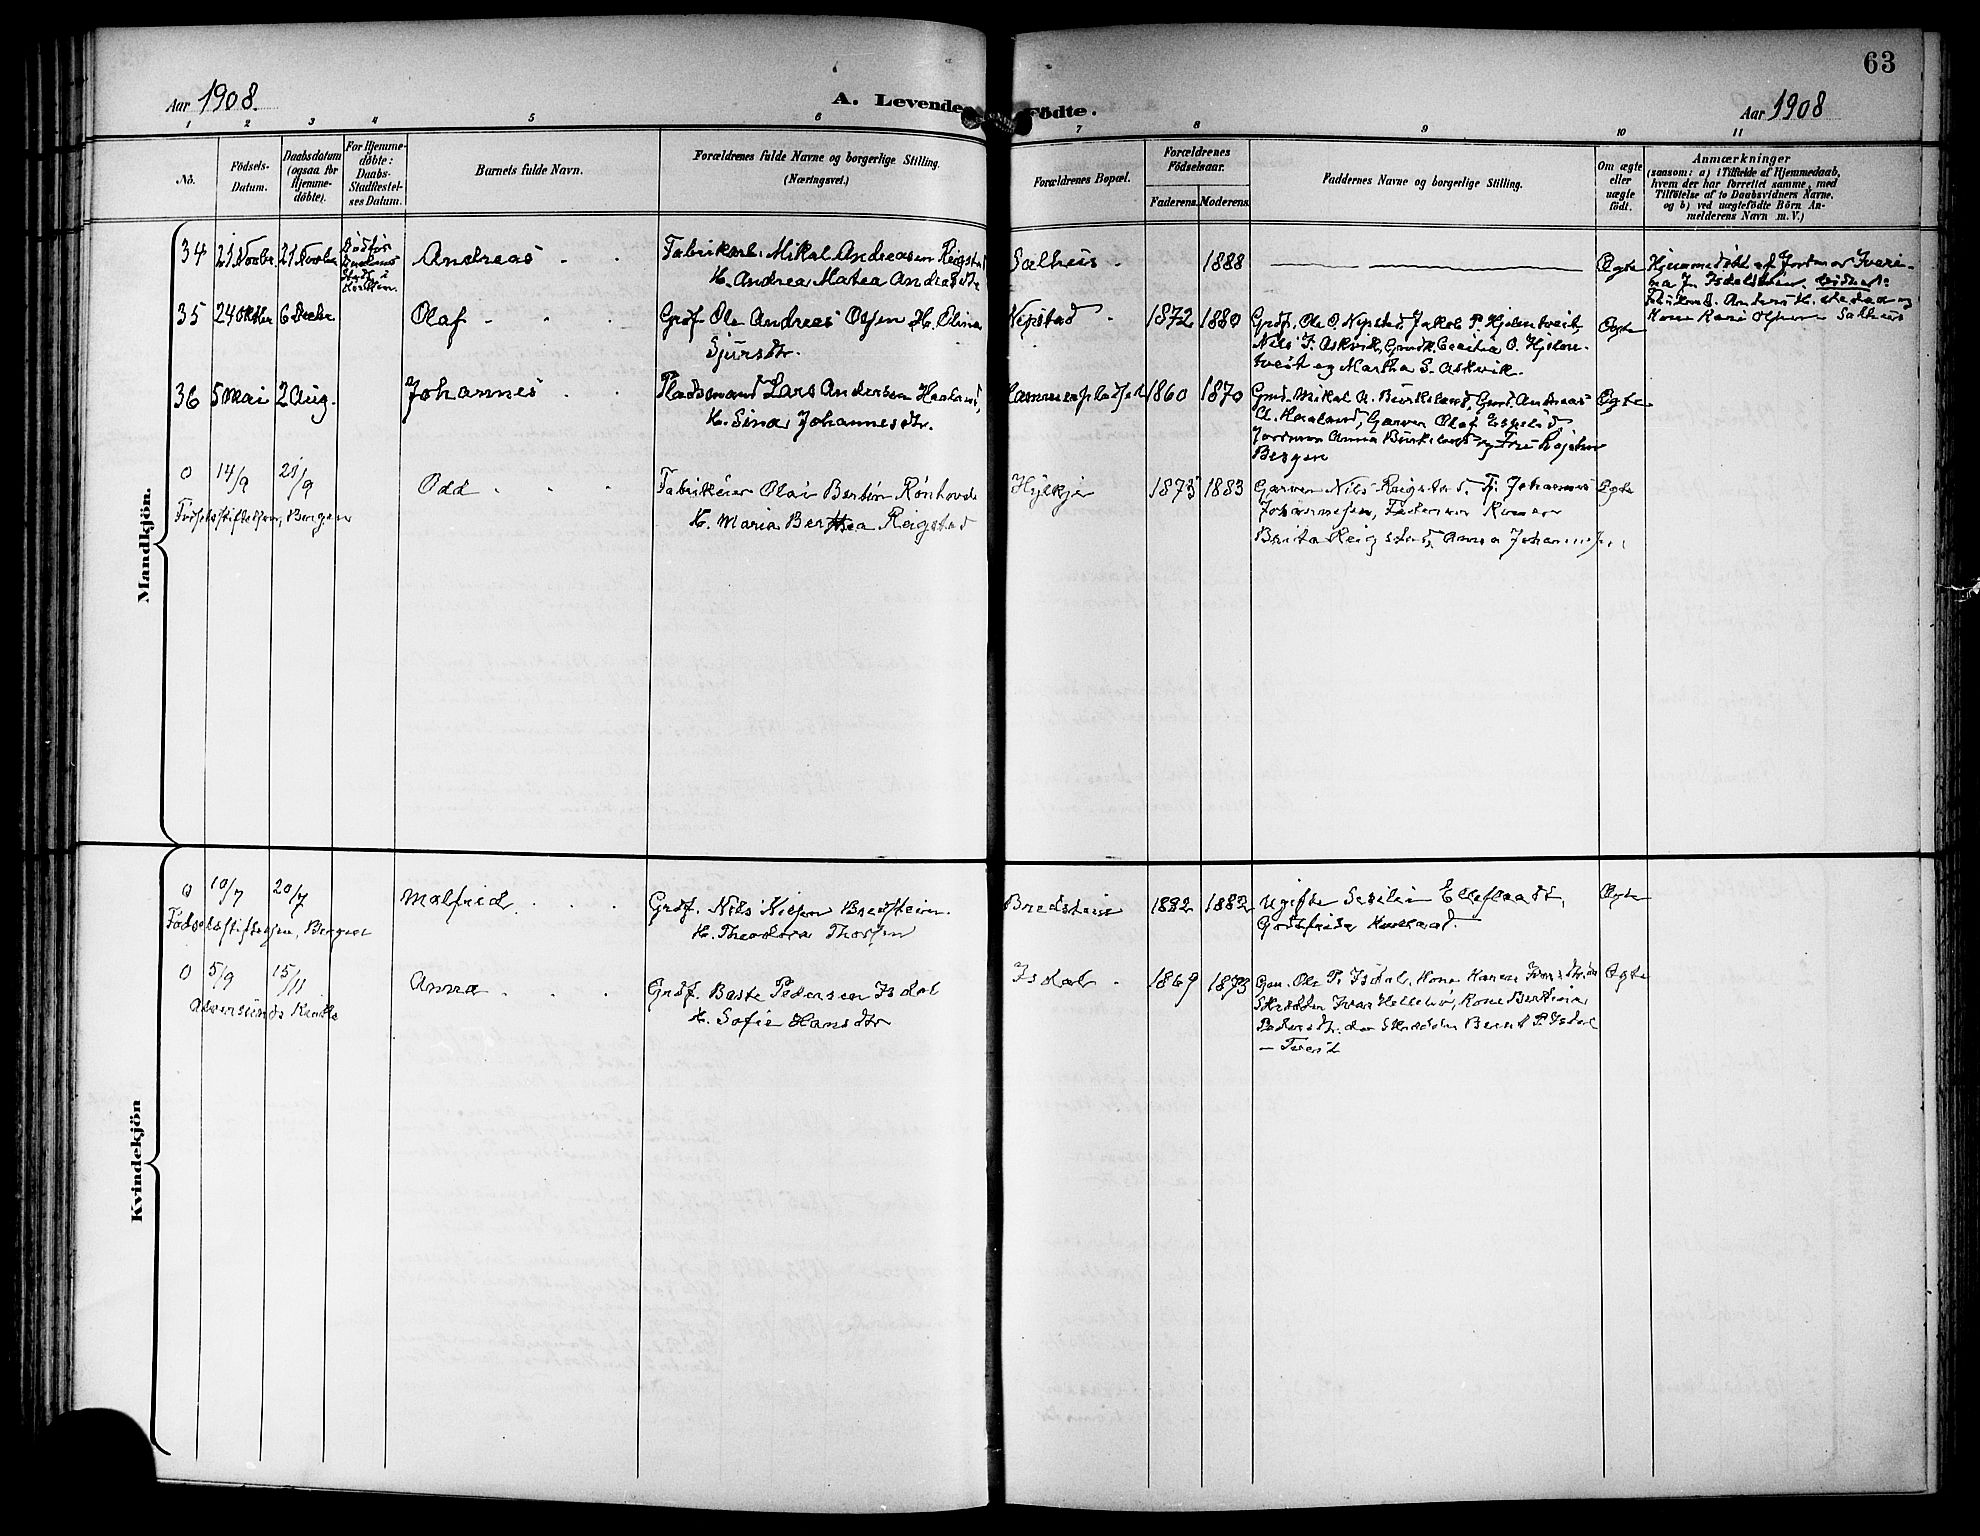 63
Aar 1908.
A. Levende Födte.
Aar 1908
1 2 3 4 5 6 7 8 9 10 11
No.
Födsels-
Datum.
Daabsdatum
(ogsaa for
Hjemme-
döbte).
For Hjemme-
döbte:
Daabs-
Stadfæstel-
ses Datum.
Barnets fulde Navn.
Forældrenes fulde Navne og borgerlige Stilling.
(Næringsvei.)
Forældrenes Bopæl.
Forældrenes
Födselsaar.
Faderens. Moderens.
Faddernes Navne og borgerlige Stilling.
Om ægte
eller
uægte
födt.
Anmærkninger
(saasom: a) i Tilfælde af Hjemmedaab,
hvem der har forrettet samme, med
Tilföielse af to Daabsvidners Navne,
og b) ved uægtefödte Börn An-
melderens Navn m. V.)
Mandkjön.
34 21 Novbr. 21 Novbr Död før Daabens Stadf. i Kirken.
Andreas
Fabrikarb. Mikal Andreasen Reigstad
H. Andrea Matea Andreasdtr
Salhus 1888
Ægte
Hjemmedøbt af Jordmor
Kone Kari Olsen Salhus
35 24 Oktbr 6 Decbr
Olaf
Grdf Ole Andreas Olsen H. Elina
Sjursdtr.
Nepstad 1872 1880
Grdf. Ole O. Nepstad, Jakob P. Hjelmtveit,
Nils J. Askvik, Grmdk. Cecilia O. Hjelm-
tveit og Martha S. Askvik.
Ægte
36 5 Mai 2 Aug.
Johannes
Pladsmand Lars Andersen Haaland,
H. Sina Johannesdtr.
Hammerspladsen 1860 1870
Gmd. Mikal A. Birkeland, Gmd. Andreas
A. Haaland, Garver Olaf
Jordmor Anna Birkeland og Fru
Bergen
Ægte
0 14/9 21/9
Födselsstiftelsen, Bergen
Odd
Fabrikeier Olai Bertin Rönhovde
H. Maria Berthea Reigstad
Hylkje 1875 1883
Garver Nils Reigstad, Johannes
Johannessen,
Brita Reigstad, Anna Johannessen
Ægte
Kvindekjön
0 10/7 20/7
Födselsstiftelsen, Bergen
Malfrid
Grdf. Nils Nilsen Bredstein.
H. Theodora Thorsen
Bredstein 1882 1882
Ugifte
Ægte
0 5/9 15/11
Alversunds Kirke
Anna
Grdf. Baste Pedersen Isdal
H. Sofie Hansdtr
Isdal 1869 1873
Gm. Ole P. Isdal, Kone Karen
Skrædder Ivar Kone Bertina
Pedersdtr. Skrædder Bernt P. Isdal
— Tveit
Ægte